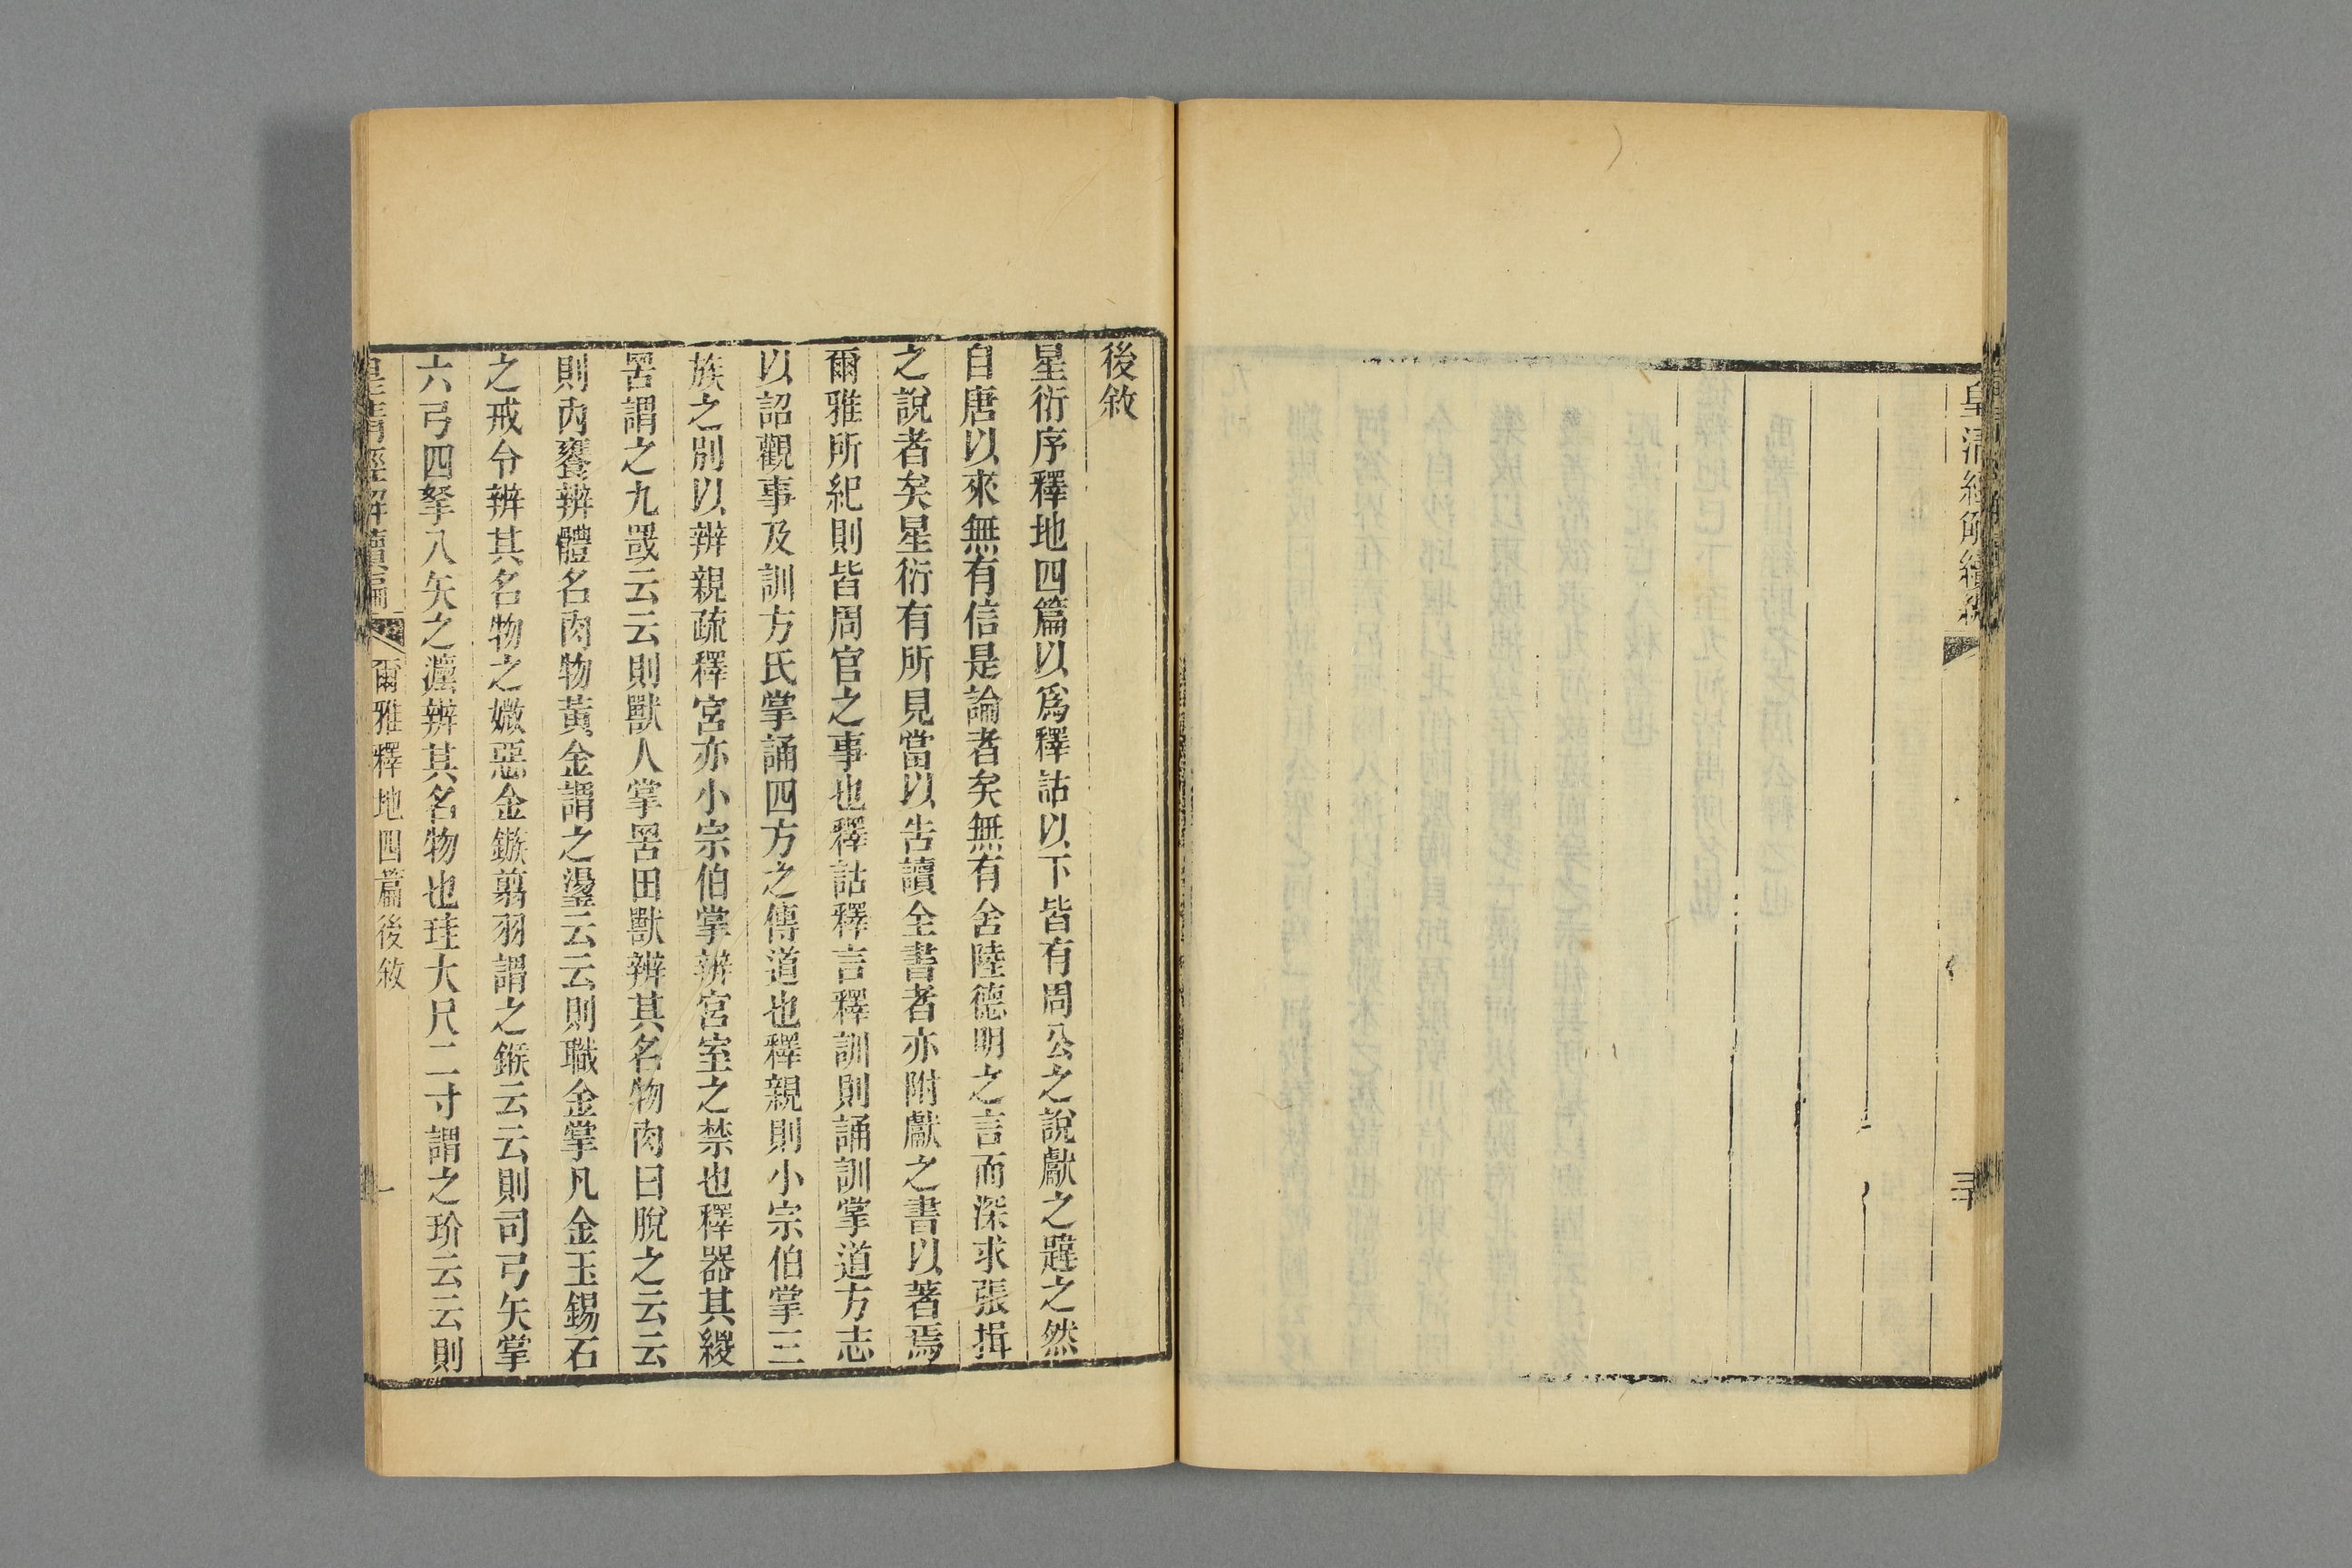 皇清經解續編
三十
後敘
星衍序釋地四篇以爲釋詁以下皆有周公之說獻之韙之然
自唐以來無有信是論者矣無有舍陸德明之言而深求張揖
之說者矣星衍有所見當以告讀全書者亦附獻之書以著焉
爾雅所紀則皆周官之事也釋詁釋言釋訓則誦訓掌道方志
以詔觀事及訓方氏掌誦四方之傳道也釋親則小宗伯掌三
族之別以辨親疏釋宮亦小宗伯掌辨宮室之禁也釋器其緵
罟謂之九罭云云則獸人掌罟田獸辨其名物肉曰脫之云云
則內饔辨體名肉物黃金謂之璗云云則職金掌凡金玉錫石
之戒令辨其名物之媺惡金鏃翦羽謂之鍭云云則司弓矢掌
六弓四弩八矢之灋辨其名物也珪大尺二寸謂之玠云云則
皇清經解續編
爾雅釋地四篇後敘
一